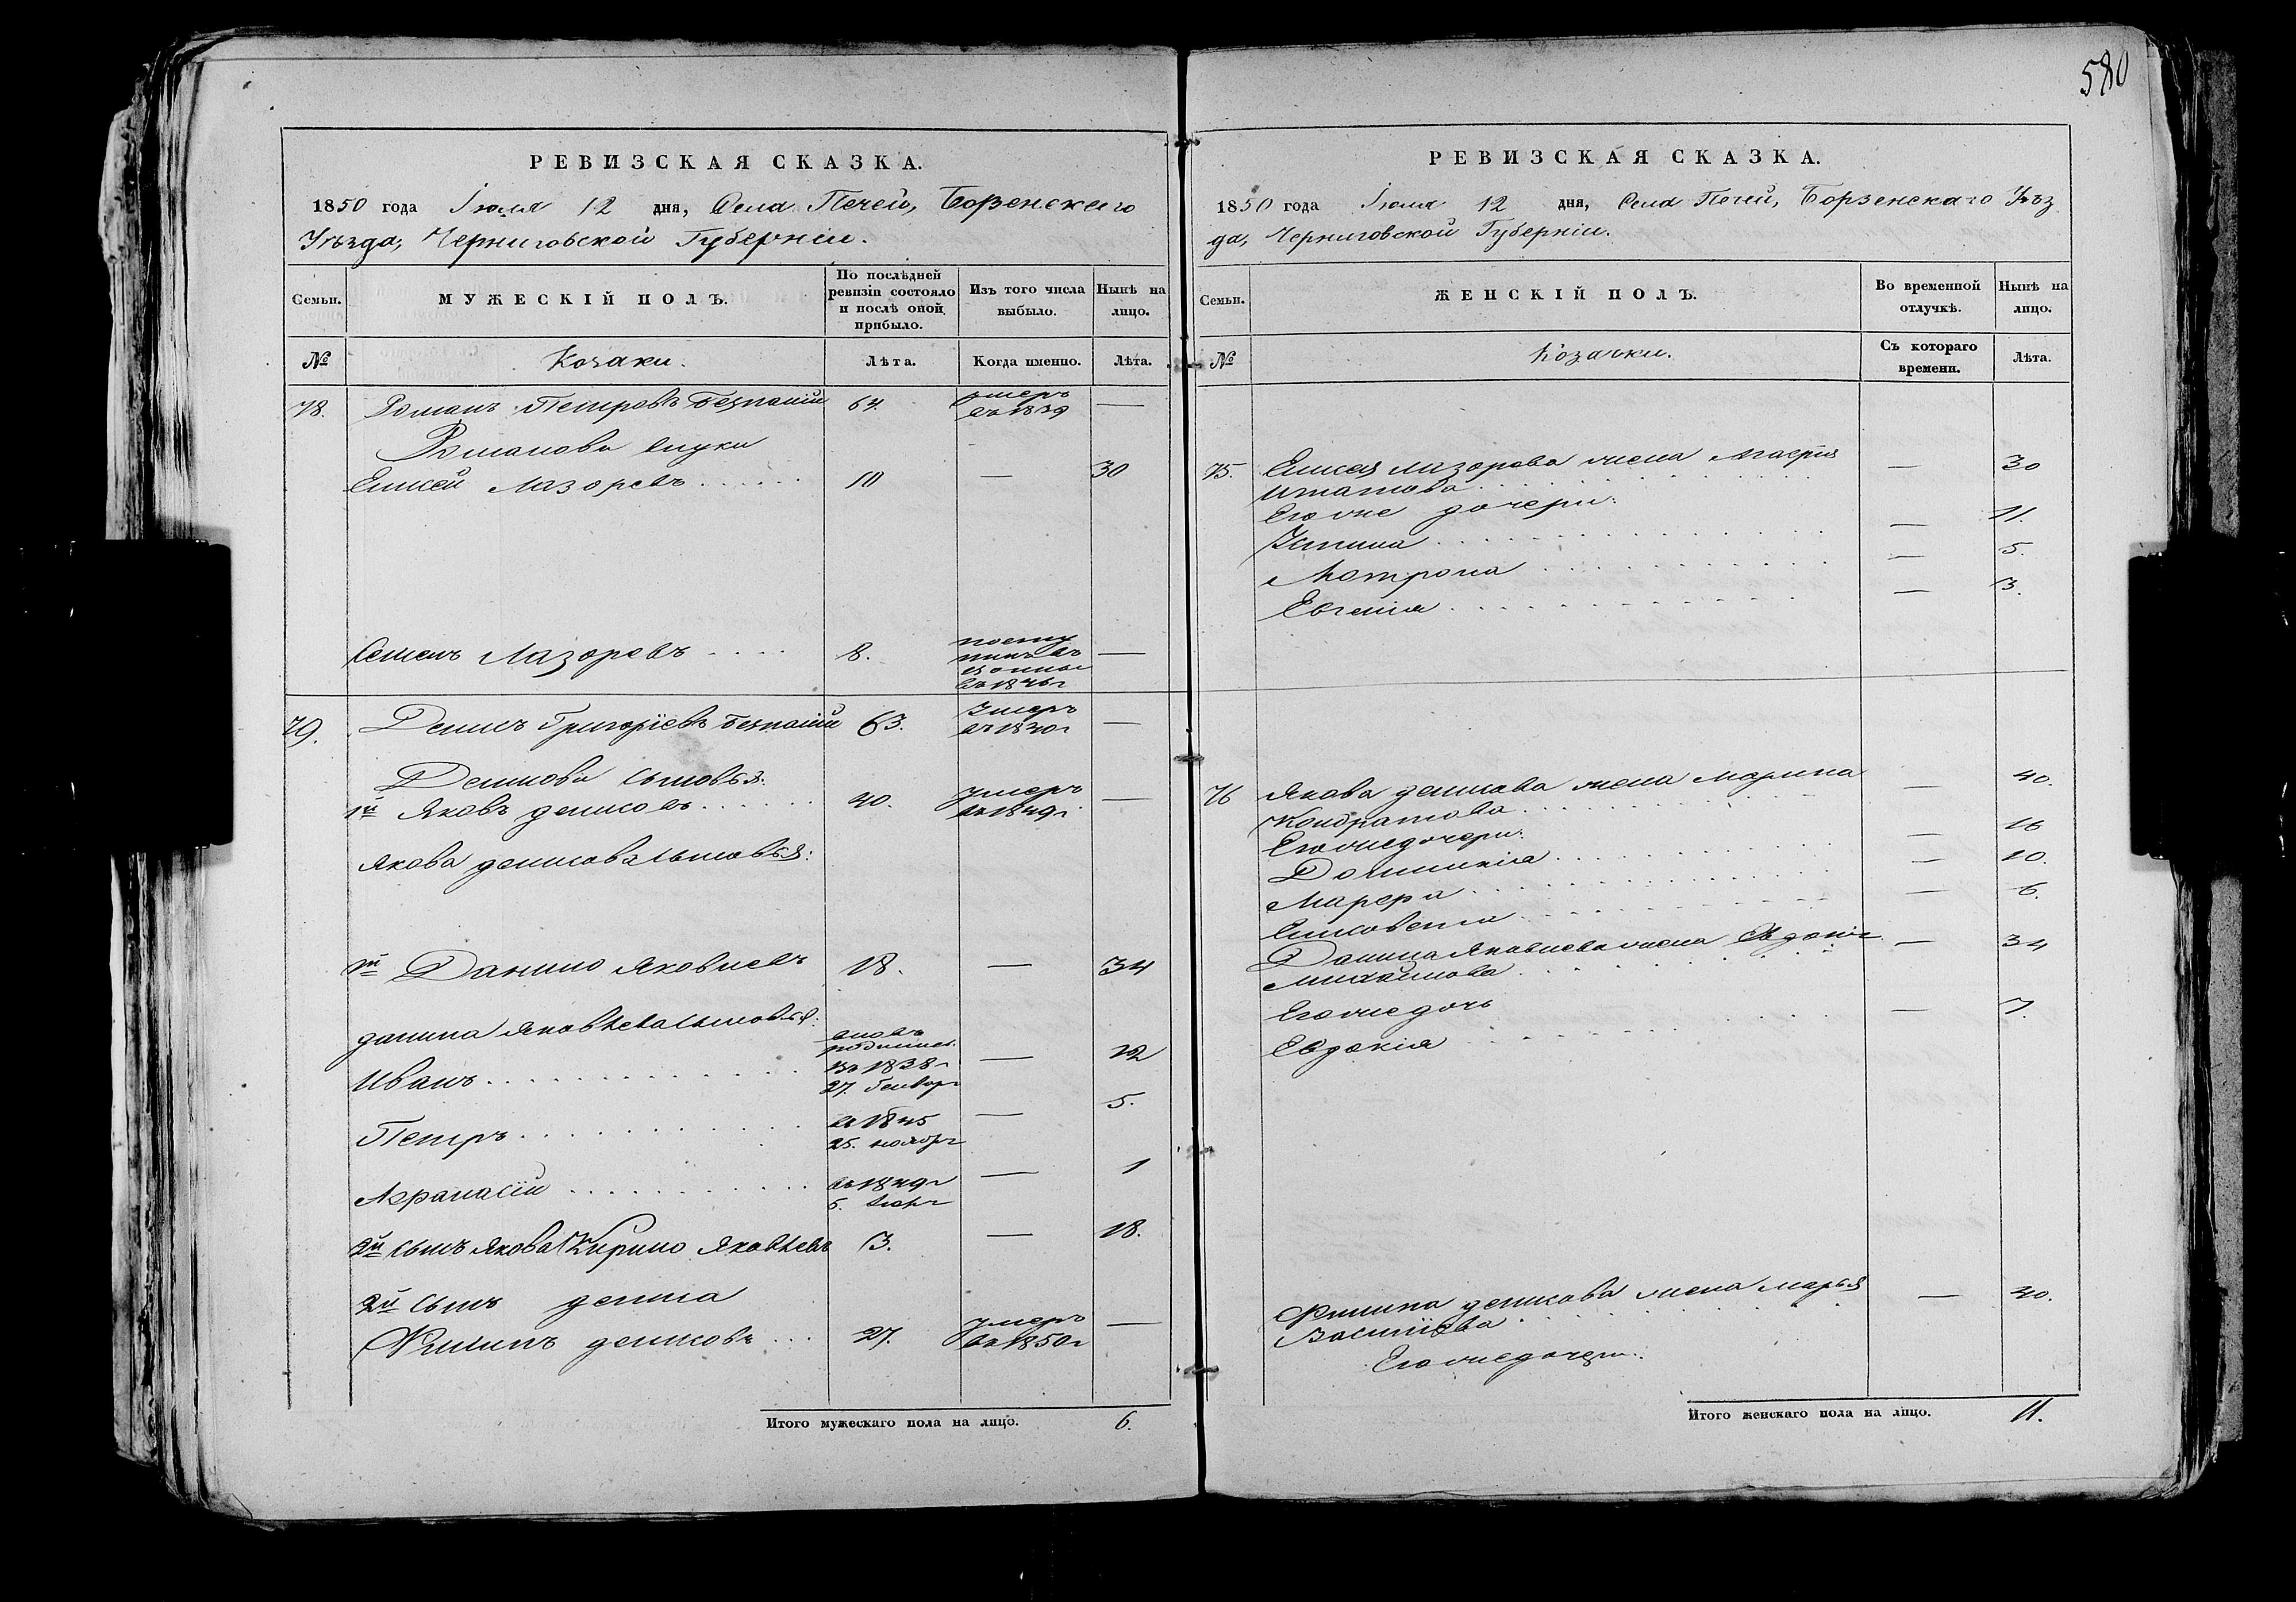 580
РЕВИЗСКАЯ СКАЗКА.
1850 года Іюля 12 дня, Села Печей, Борзенскаго
Уѣзда, Черниговской Губерніи.
Семьи.
МУЖЕСКІЙ ПОЛЪ.
По послѣдней
ревизіи состояло
и послѣ оной
прибыло.
Изъ того числа
выбыло.
Нынѣ на
лицо.
№
Козаки.
Лѣта.
Когда именно.
Лѣта.
78. Романъ Петровъ 64. умеръ —
въ 1839
Романови внуки
Елисей Лазоревъ 10 — 30
Семенъ Лазоревъ 8. —
въ 1846г
79. Денисъ Григоріевъ 63. Умеръ —
въ 1840г
Денисови сыновья:
1й Яковъ денисовъ 40. Умеръ —
въ 1849г
Якова денисова сыновья:
1й Данило Яковлевъ 18. — 34
данила Яковлева сыновья:
вновь
родились
Иванъ въ 1838г — 12
27. Генвар
Петръ въ 1845 — 5.
25. ноябр
Афанасій въ 1849г — 1
6.
2й сынъ Якова Кирило Яковлевъ 3. — 18.
2й сынъ дениса
Филипъ денисовъ 27. Умеръ —
въ 1850г
Итого мужескаго пола на лицо. 6.
РЕВИЗСКАЯ СКАЗКА.
1850 года Іюля 12 дня, Села Печей, Борзенскаго Уѣз
да, Черниговской Губерніи.
Семьи.
ЖЕНСКІЙ ПОЛЪ.
Во временной
отлучкѣ.
Нынѣ на
лицо.
№
Козачки.
Съ котораго
времени.
Лѣта.
75. Елисея Лазорева жена — 30
Игнатова
Егоже дочери:
Устина — 11.
Мотрона — 5.
Евгенія — 3.
76 Якова денисова жена Марина — 40.
Кондратова
Егоже дочери:
Домникія — 16
Марфа — 10.
Елисовета — 6.
Данила Яковлева жена Евдокія — 34
Михайлова
Егоже дочь
Евдокія — 7.
Филипа денисова жена марья — 40.
Василіева
Егоже дочери:
Итого женскаго пола на лицо. 11.